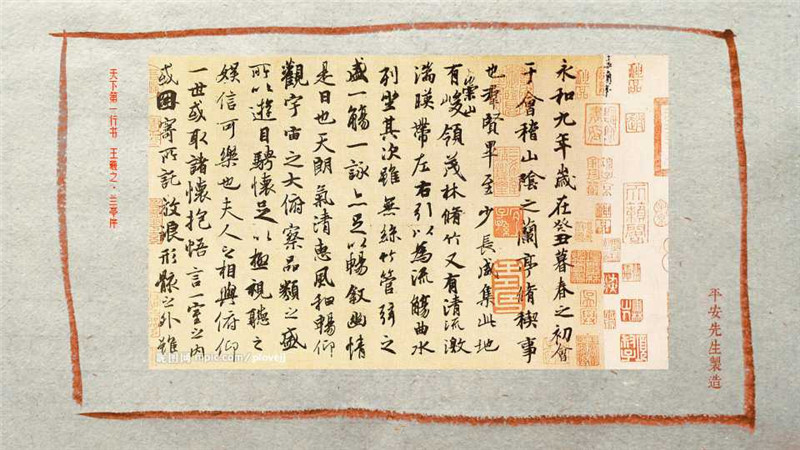 永和九年歲在癸丑暮春之初會
于會稽山陰之蘭亭脩稧事
也羣賢畢至少長咸集此地
有崇山峻領茂林脩竹又有清流激
湍暎帶左右引以為流觴曲水
列坐其次雖無絲竹管弦之
盛一觴一詠亦足以暢敘幽情
是日也天朗氣清惠風和暢仰
觀宇宙之大俯察品類之盛
所以遊目騁懷足以極視聽之
娛信可樂也夫人之相與俯仰
一世或取諸懷抱悟言一室之內
或因寄所託放浪形骸之外雖
平安先生製造
天下第一行书 王羲之·兰亭序
昵图网 nipic.com/plovejj